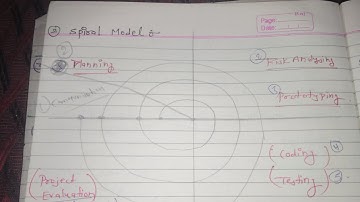 Spiral Model :-
Page:
Date:
② Planning
③ Risk Analysing
③ Prototyping
Coding ④
Testing ⑤
Project
Evaluation